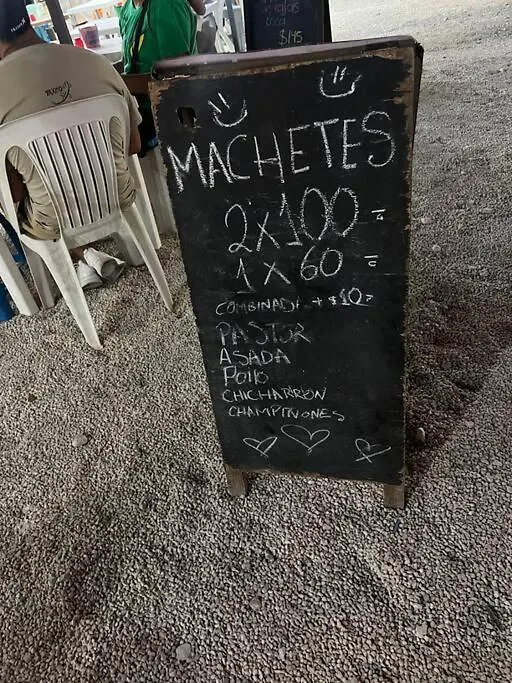 $145
MACHETES
2X100
1X60
COMBINADA + $10
PASTOR
ASADA
Pollo
CHICHARRON
CHAMPINONES